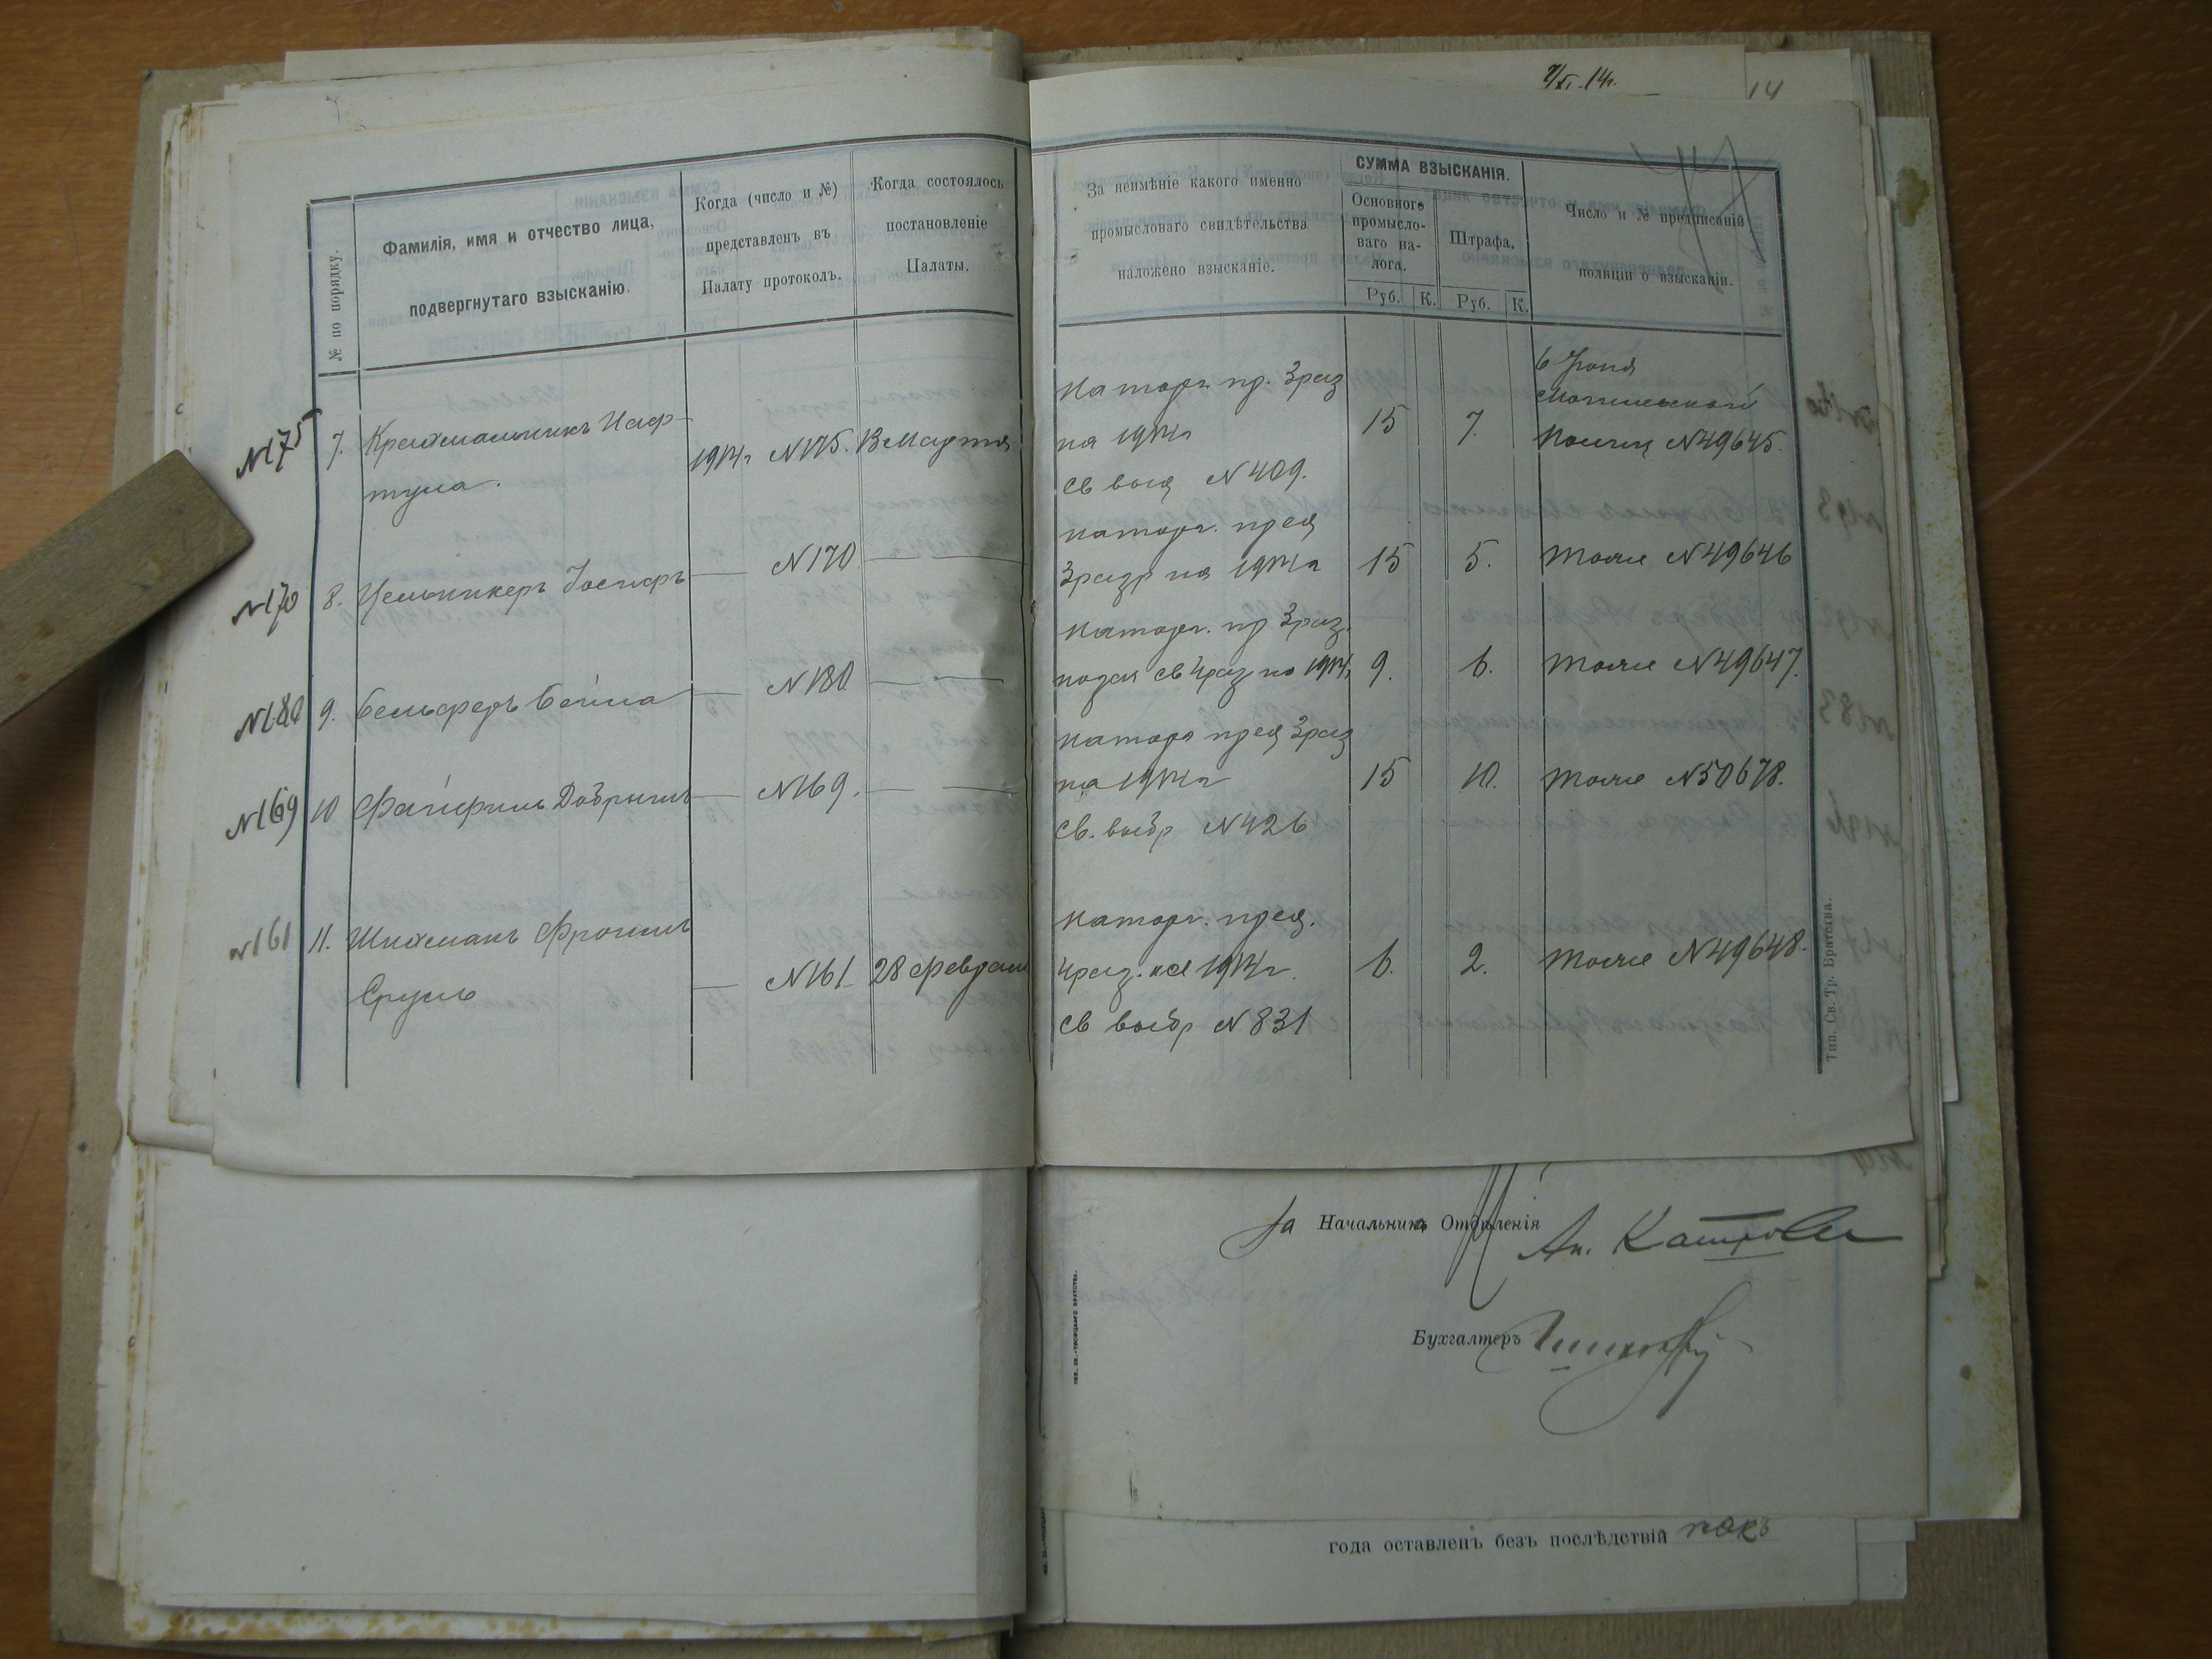 7/XI. 14г.
14
№ по порядку.
Фамилія, имя и отчество лица,
подвергнутаго взысканію.
Когда (число и №)
представленъ въ
Палату протоколъ.
Когда состоялось
постановленіе
Палаты.
За неимѣніе какого именно
промысловаго свидѣтельства
наложено взысканіе.
СУММА ВЗЫСКАНІЯ.
Основного
промысло-
ваго на-
лога.
Штрафа,
Руб. К. Руб. К.
Число и № предписаній
полиціи о взысканіи.
№175 7. Крахмальникъ Наф-
тула.
1914г №175. 13 Марта
на торг. пр. 3 раз
на 1914г
св выд №409.
15 7.
6 Іюня
Могилевской
полиц №49645.
№170 8. Цельникеръ Іосифъ — №170 — —
на торг. пред
3 разр на 1914г 15 5. тоже №49646
№180 9. Бельферъ Бейла — №180 — —
на торг. пр 3 раз.
подан св 4 раз на 1914г 9. 6. тоже №49647.
№169 10 Файфиль Добрыш — №169. — —
на торг пред 3 раз
на 1914г 15 10. тоже №50678.
св. выбр №426
№161 11. Шихманъ Фроим
Сруль — №161 28 февраля
на торг. пред.
4 раз. на 1914г. 6. 2. тоже №49648.
св выбр №831
Тип. Св. Тр. Братства.
За Начальника Отдѣленія
Бухгалтеръ
года оставленъ безъ послѣдствій